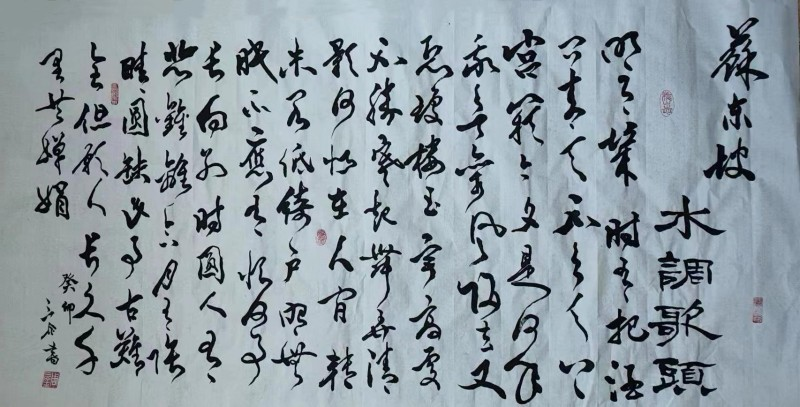 蘇东坡
水調歌頭
明月幾時有把酒
问青天不知天上
宫闕今夕是何年
我欲乘風歸去又
恐瓊樓玉宇高處
不勝寒起舞弄清
影何似在人间轉
朱阁低绮户照無
眠不應有恨何事
长向别時圓人有
悲歡離合月有陰
晴圓缺此事古難
全但願人长久千
里共嬋娟
癸卯
書